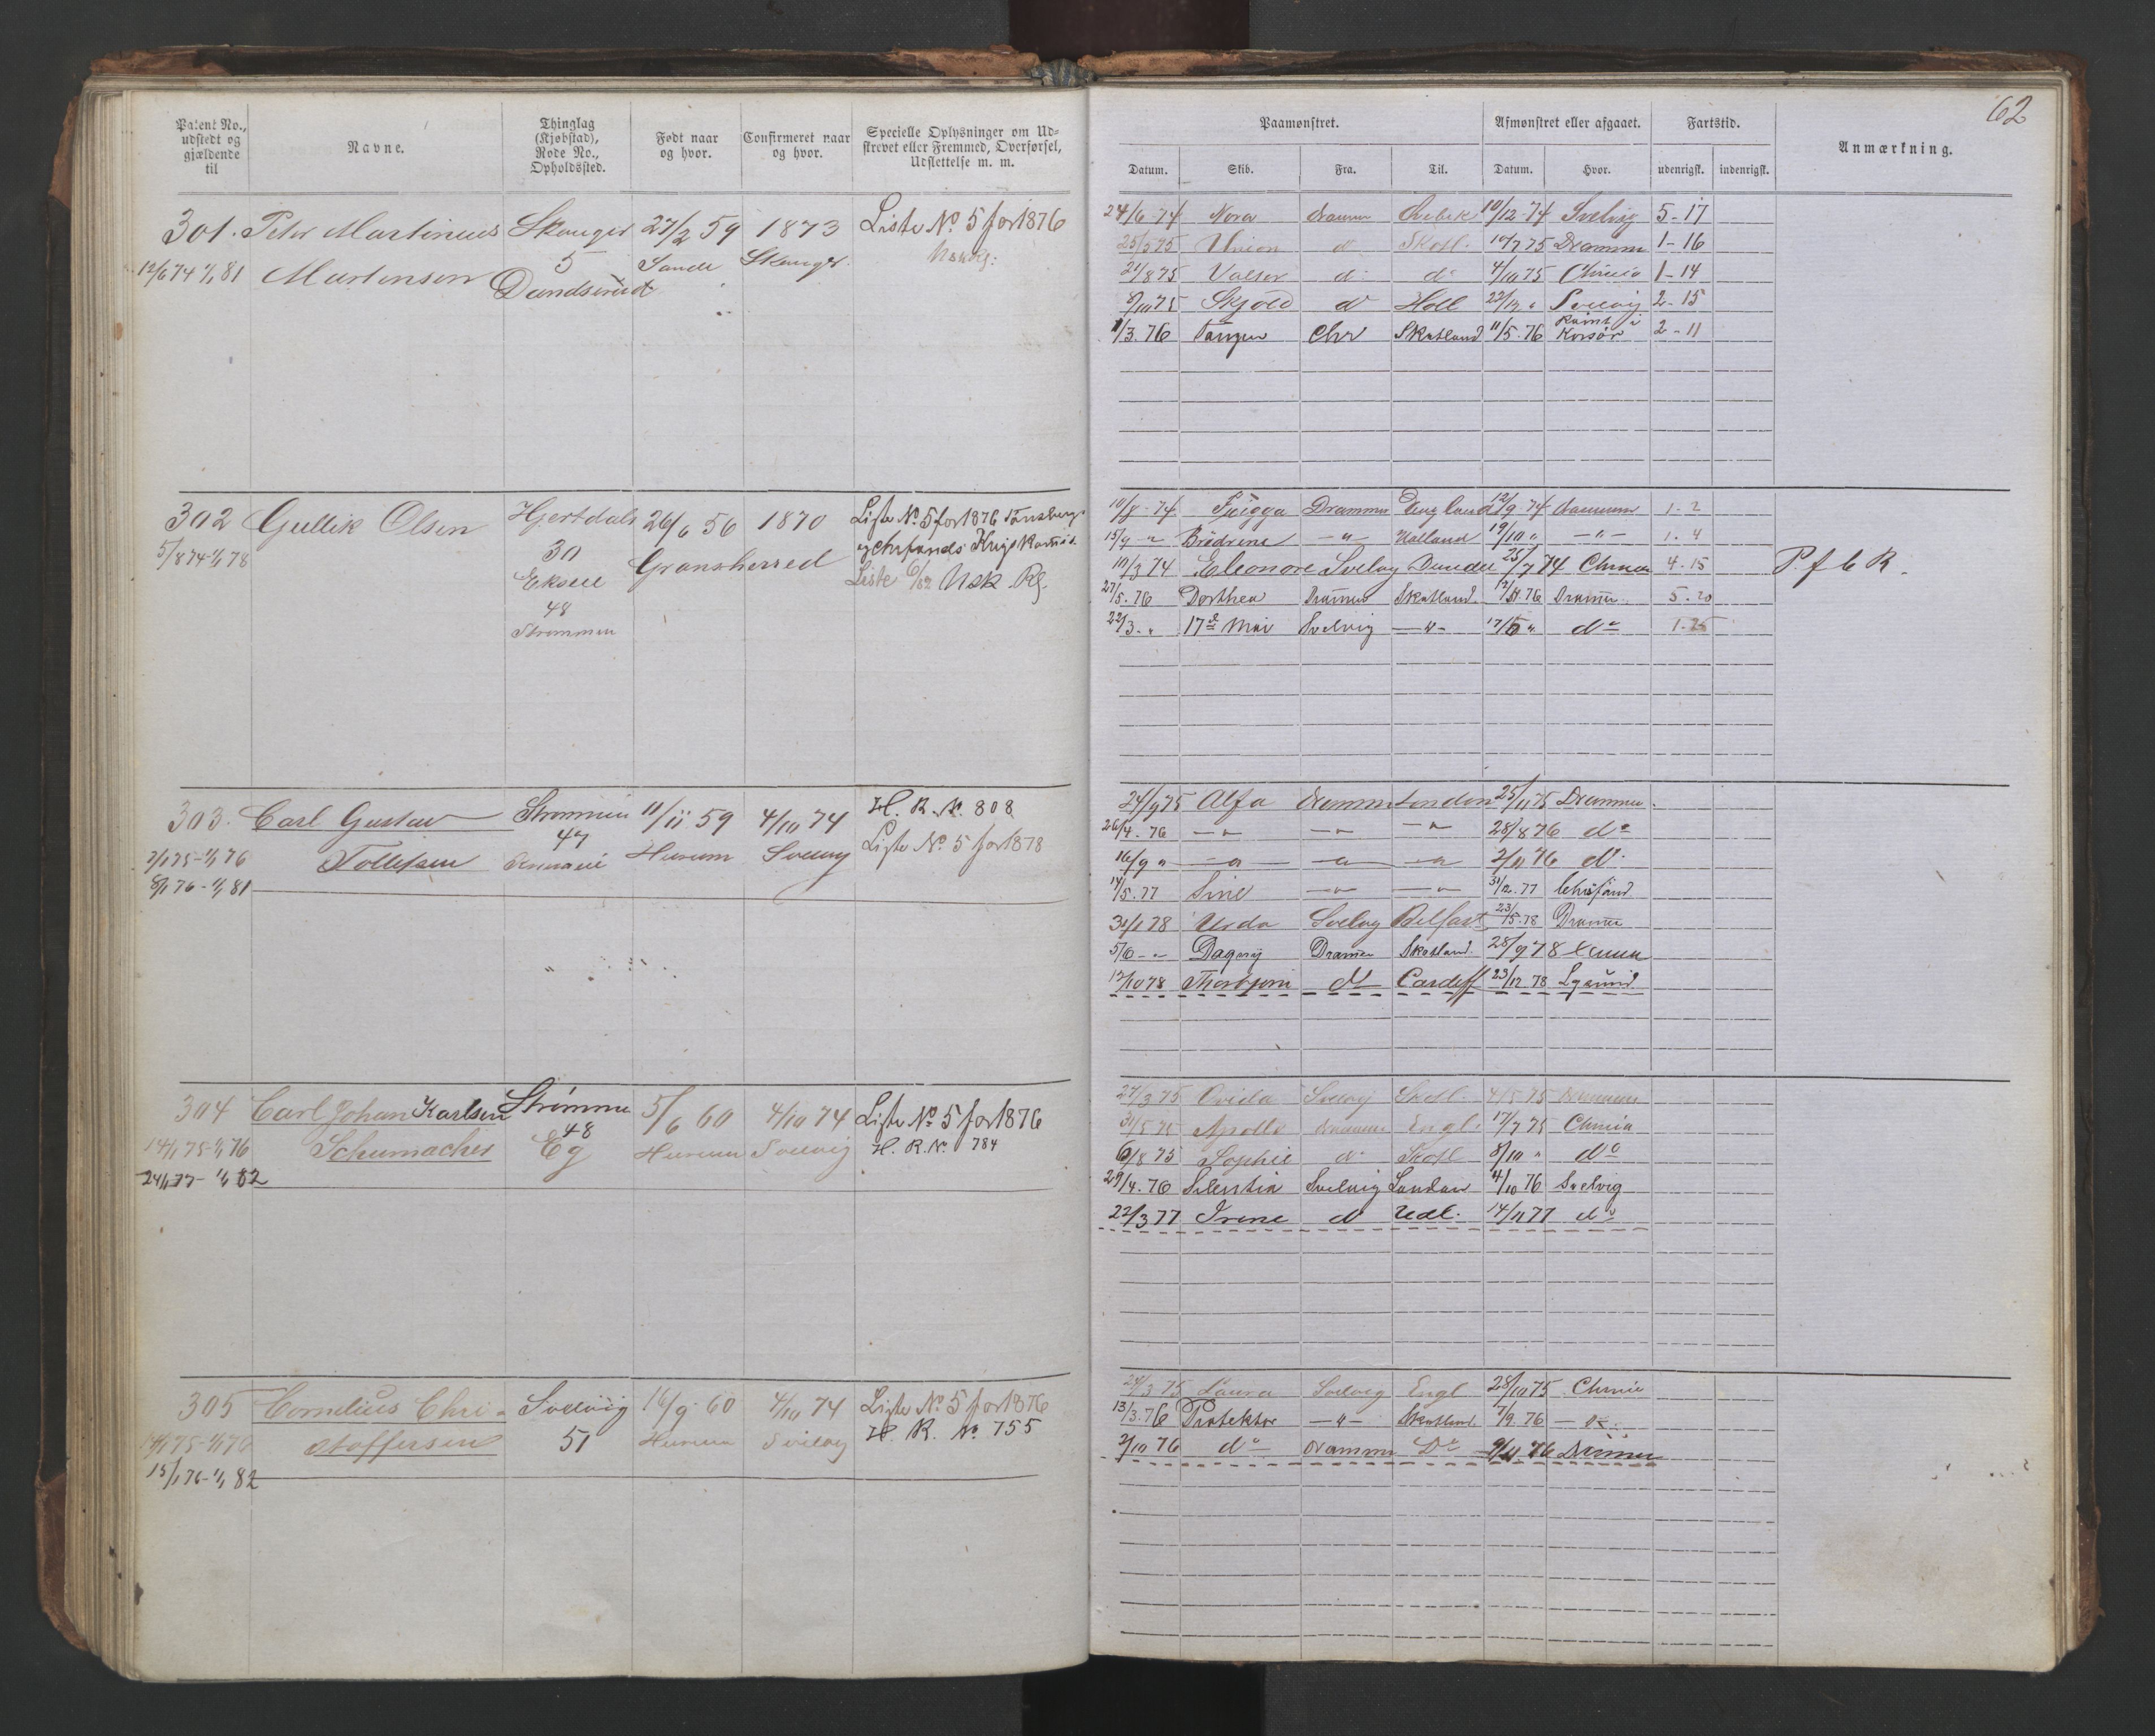 62
Patent No., udstedt og gjældende til
Navne.
Thinglag (Kjøbstad), Rode No., Opholdssted.
Født naar og hvor.
Confirmeret naar og hvor.
Specielle Oplysninger om Udskrevet eller Fremmed, Overførsel, Udslettelse m. m.
Paamønstret.
Afmønstret eller afgaaet.
Fartstid.
Anmærkning.
Datum. Skib. Fra. Til. Datum. Hvor. udenrigsk. indenrigsk.
301. Peter Martinius Skouger 27/2 59 1873 Liste No. 5 for 1876
12/6 74 1/1 81 Martinsen 5 Sande Skouger.
24/6-74 Nora Drammen 10/12-74 Svelvig 5-17
25/5 75 Union do Skotl. 75 Drammen 1-16
21/8 75 do do 4/10 75 Chria 1-14
8/10 75 Skjold do Holl 22/12 " Svelvig 2-15
1/3. 76 Chr Skotland 11/5. 76 Rømt i Korsør 2-11
302 Gullik Olsen Hjertdals 26/6 56 1870 Liste No. 5 for 1876 Tønsberg
5/8 74-1/1 78 30 Gransherred
48
Strømmen
10/8-74 Drammen England 12/9 74 Drammen 1-2
15/9 - " Brødrene - " - Holland 19/10 " - " - 1. 4
10/3 74 Eleonore Svelvig Dundee 25/7 74 4. 15 P. f 6 R.
27/5. 76 Dorthea Drammen Skotland 76 Drammen 5. 20
22/3. " 17de Mai Svelvig - " - 17/5 " do 1-25
303. Carl Gustav Strømmen 11/11 59 4/10 74 H. R. No. 808
47 Liste No. 5 for 1878
2/1 75-1/1 76 Tollefsen Hurum Svelvig
8/1 76-1/1 81
24/9 75 Alfa Drammen London 25/11 75 Drammen
26/4. 76 - " - - " - - " 28/8 76 do
16/9 " - " - - " - - " 2/11 76 do
14/5. 77 Sine - " - - " 31/12. 77 Chrisfand
31/1 78 Urda Svelvig Belfast 23/5. 78 Drammen
5/6 - " - Dagny Drammen Skotland 28/9 78
12/10 78 Thorbjørn do Cardiff 23/12 78
304 Carl Johan Karlsen Strømmen 5/6 60 4/10 74 Liste No. 5 for 1876
48
14/1 75-1/1 76 Schumacher Eg Hurum Svelvig H. R. No. 784
24/1 77-1/1 82
27/3 75 Ovida Svelvig Skotl. 4/5 75 Drammen
31/5 75 Apollo Drammen Engl. 17/7 75 Chria
6/8 75 Sophie do Skotl 8/10 " do
29/4. 76 Svelvig London 4/10 76 Svelvig
22/3 77 Irene do Udl. 14/11 77 do
305 Cornelius Chri- Svelvig 16/9 60 4/10 74 Liste No. 5 for 1876
14/1 75-1/1 76 stoffersen 51 Hurum Svelvig H. R. No 755
15/1 76-1/1 82
24/3 75 Laura Svelvig Engl 28/10 75 Chria
13/3. 76 Protektor - " - Skotland 7/9. 76 - " -
2/10 76 do Drammen Do 9/11 76 Drammen